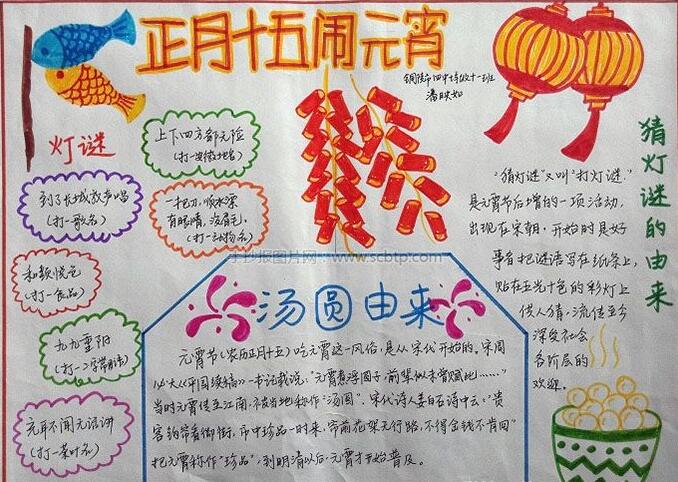 正月十五闹元宵
潘映如
灯谜
上下四方都无险
(打一安徽地名)
到了长城放声唱
(打一歌名)
一把刀,顺水漂
有眼睛,没眉毛。
(打一动物名)
和颜悦色
(打一食品)
九九重阳
(打一二字常用语)
充耳不闻无法讲
(打一菜叶名)
手抄报图片网:www.scbtp.com
汤圆由来
元宵节(农历正月十五)吃元宵这一风俗,是从宋代开始的。宋周
必大《平园续稿》一书记载说:"元宵煮浮圆子,前辈似未曾赋此……"
当时元宵传至江南,被当地称作"汤圆"。宋代诗人姜白石诗中云:"贵
客钩帘看御街,市中珍品一时来,帘前花架无行路,不得金钱不肯回"
把元宵称作"珍品",到明清以后,元宵才开始普及。
猜灯谜的由来
"猜灯谜"又叫"打灯谜。"
是元宵节后增的一项活动,
出现在宋朝。开始时是好
事者把谜语写在纸条上,
贴在五光十色的彩灯上
供人猜,流传至今
深受社会
各阶层的
欢迎。